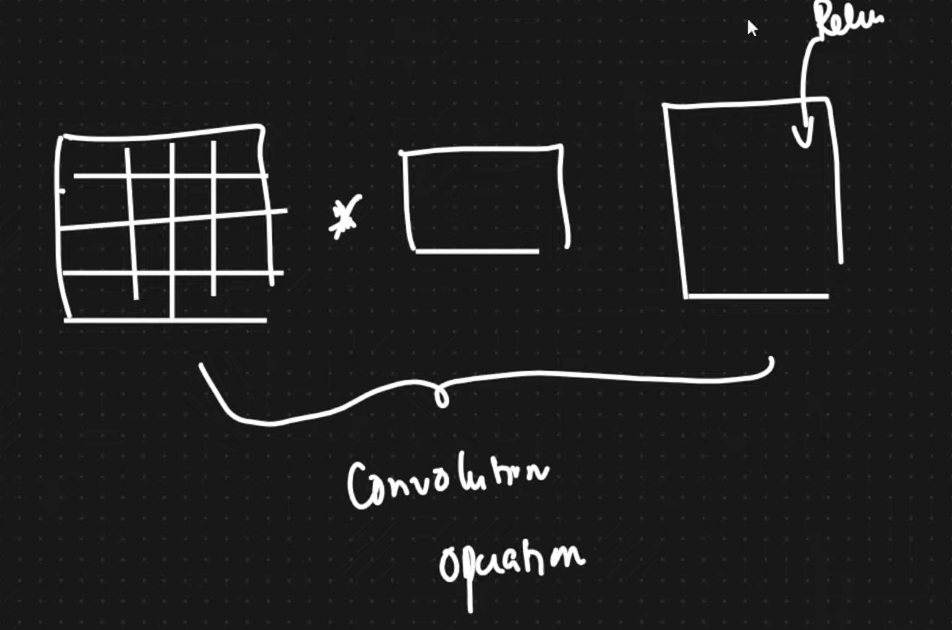 Relu
*
Convolution
operation